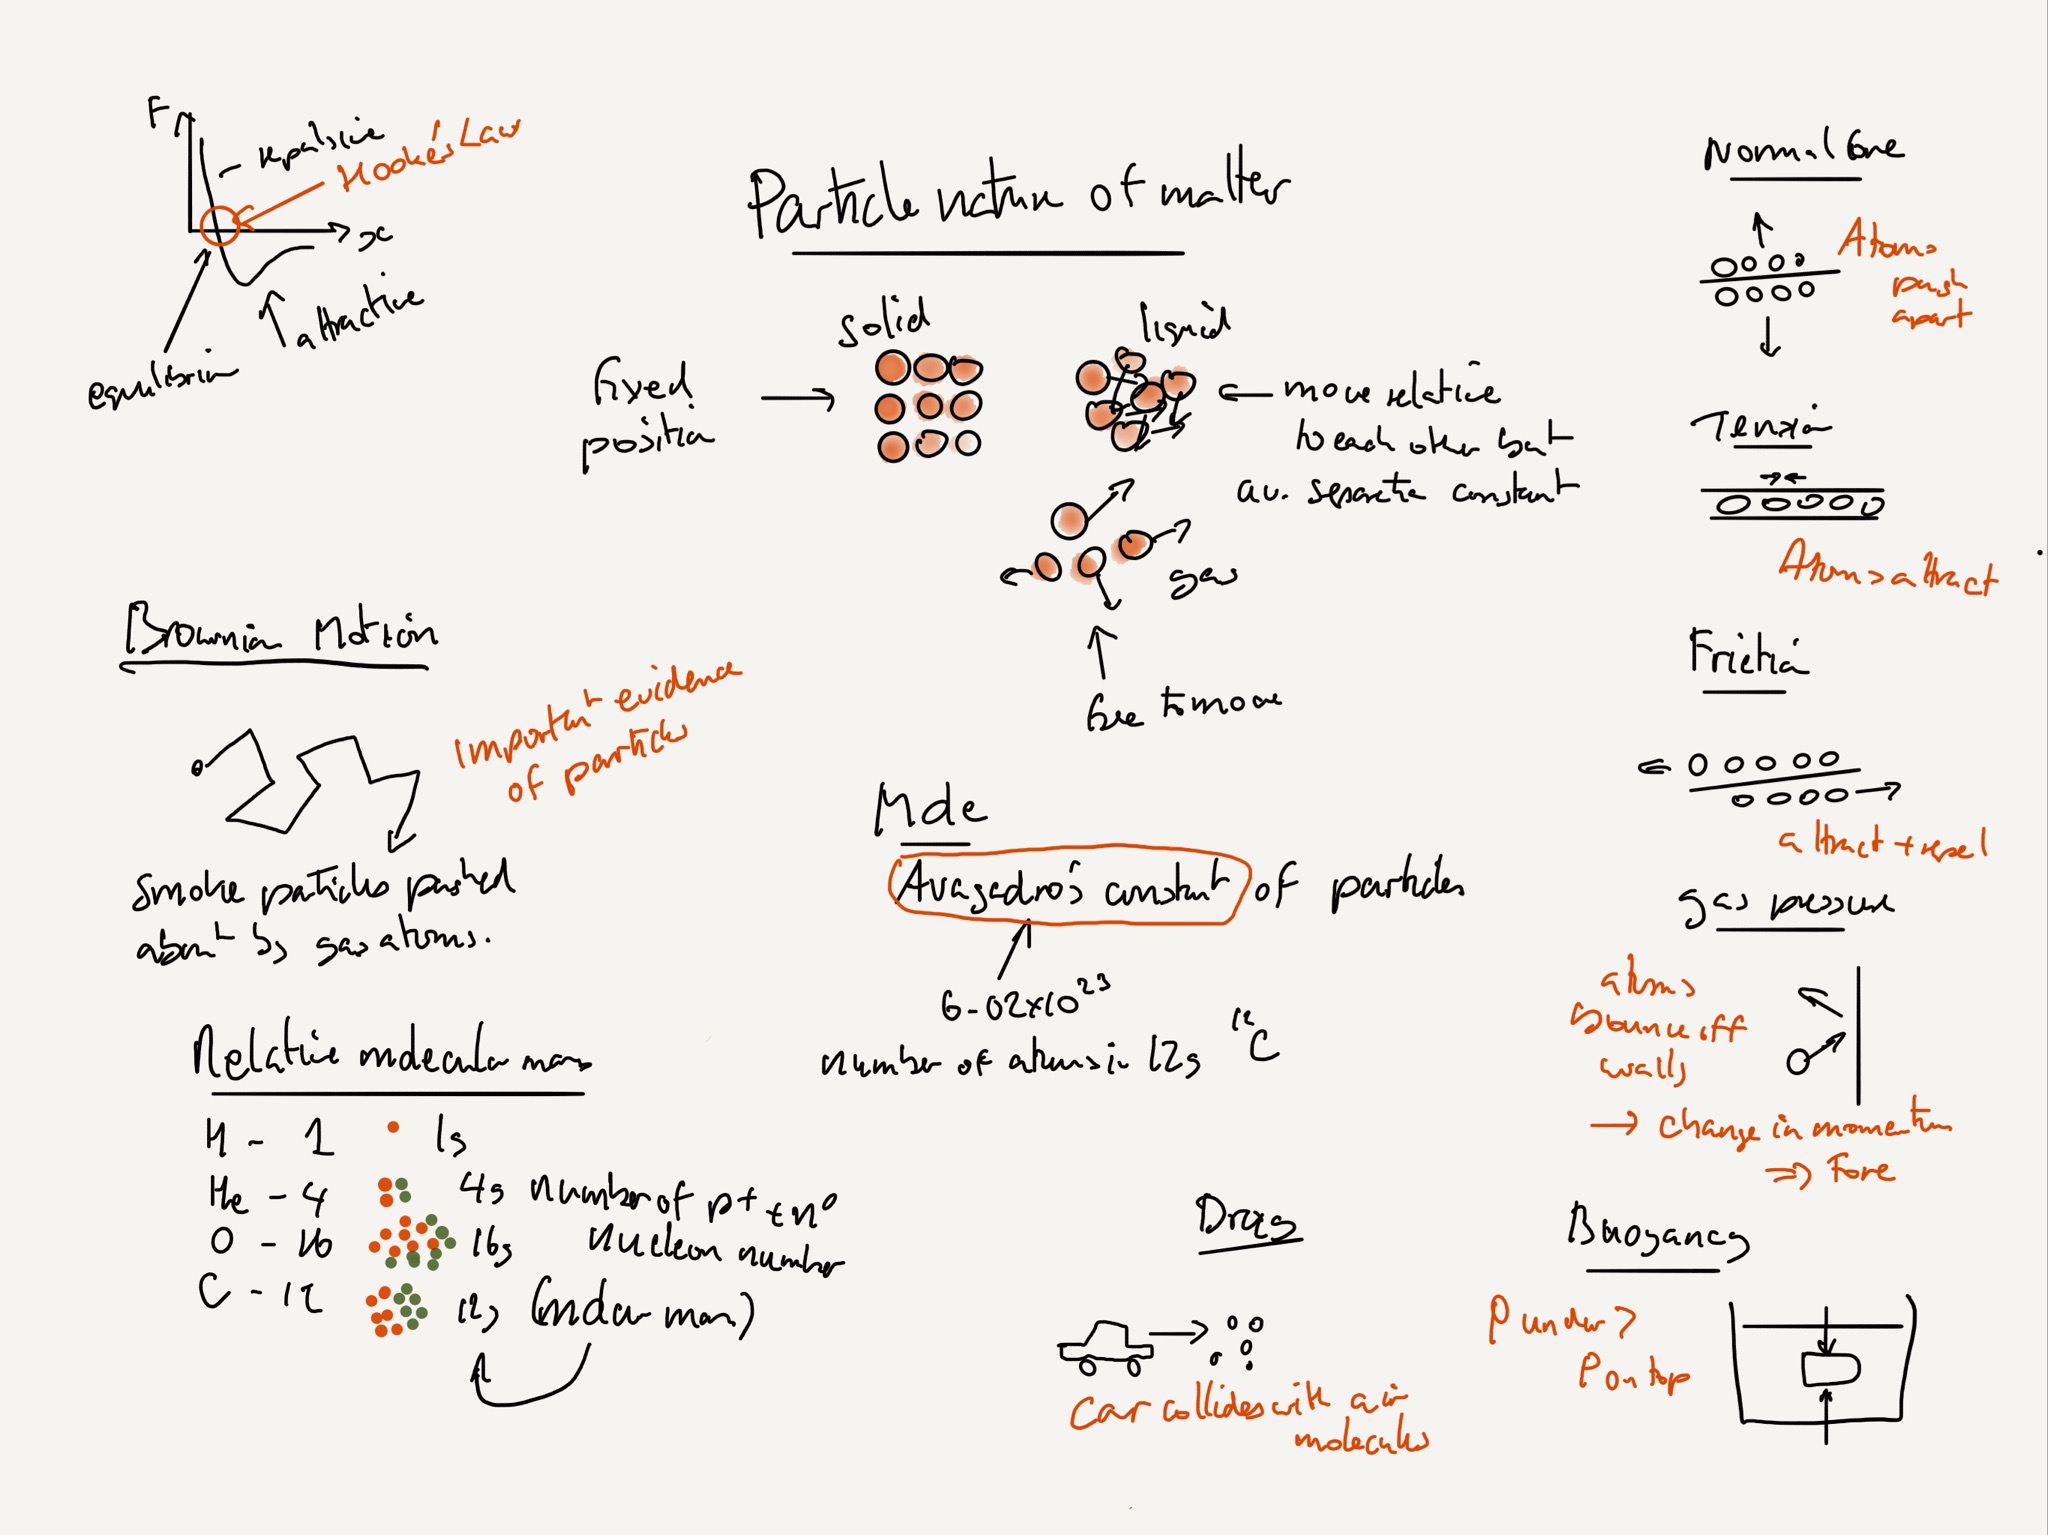 Particle nature of matter
F
repulsive
Hooke's Law
x
attractive
equilibrium
solid
liquid
fixed
position
move relative
to each other but
av. separation constant
gas
free to move
Brownian Motion
Important evidence
of particles
smoke particles pushed
about by gas atoms.
Mole
Avagadro's constant of particles
6.02x10²³
number of atoms in 12g ¹²C
Relative molecular mass
H - 1 1g
He - 4 4g number of p+ + n⁰
O - 16 16g nucleon number
C - 12 12g (molar mass)
Normal force
Atoms
push
apart
Tension
Atoms attract
Friction
attract + repel
gas pressure
atoms
bounce off
walls
→ Change in momentum
⇒ Force
Drag
Car collides with air
molecules
Buoyancy
P under >
P on top